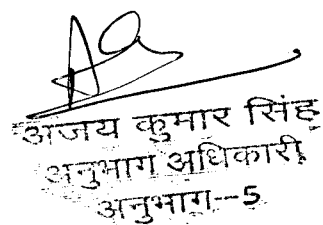 अजय कुमार सिंह
अनुभाग अधिकारी,
अनुभाग--5